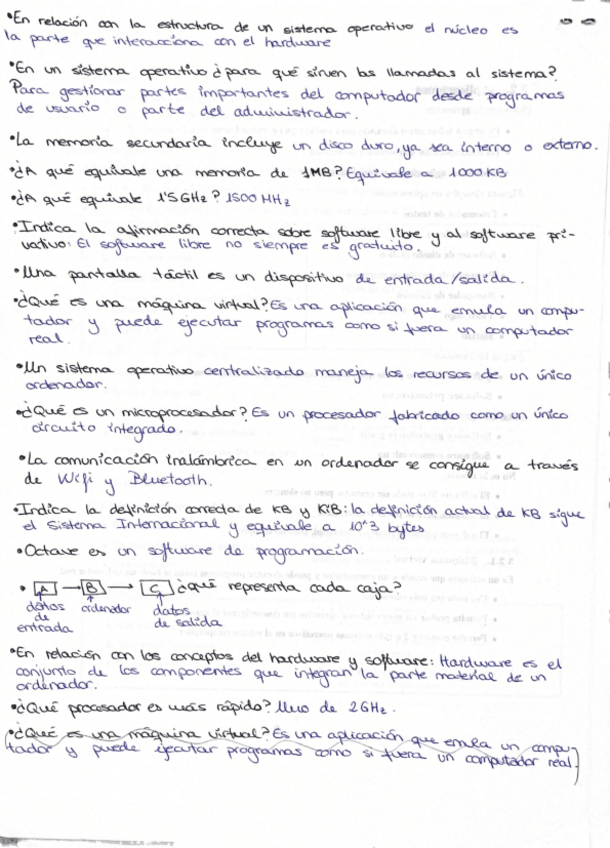 •En relación con la estructura de un sistema operativo el núcleo es
la parte que interacciona con el hardware
•En un sistema operativo ¿para qué sirven las llamadas al sistema?
Para gestionar partes importantes del computador desde programas
de usuario o parte del administrador.
•La memoria secundaria incluye un disco duro, ya sea interno o externo.
•¿A qué equivale una memoria de 1MB? Equivale a 1000 KB
•¿A qué equivale 1'5 GHz? 1500 MHz
•Indica la afirmación correcta sobre software libre y al software pri-
vativo: El software libre no siempre es gratuito.
•Una pantalla táctil es un dispositivo de entrada/salida.
•¿Qué es una máquina virtual? Es una aplicación que emula un compu-
tador y puede ejecutar programas como si fuera un computador
real.
•Un sistema operativo centralizado maneja los recursos de un único
ordenador.
•¿Qué es un microprocesador? Es un procesador fabricado como un único
circuito integrado.
•La comunicación inalámbrica en un ordenador se consigue a través
de Wifi y Bluetooth.
•Indica la definición correcta de KB y KiB: la definición actual de KB sigue
el Sistema Internacional y equivale a 10^3 bytes
•Octave es un software de programación.
• A → B → C ¿qué representa cada caja?
datos ordenador datos
de de salida
entrada
•En relación con los conceptos del hardware y software: Hardware es el
conjunto de los componentes que integran la parte material de un
ordenador.
•¿Qué procesador es más rápido? Uno de 2GHz.
•¿Qué es una máquina virtual? Es una aplicación que emula un compu-
tador y puede ejecutar programas como si fuera un computador real.